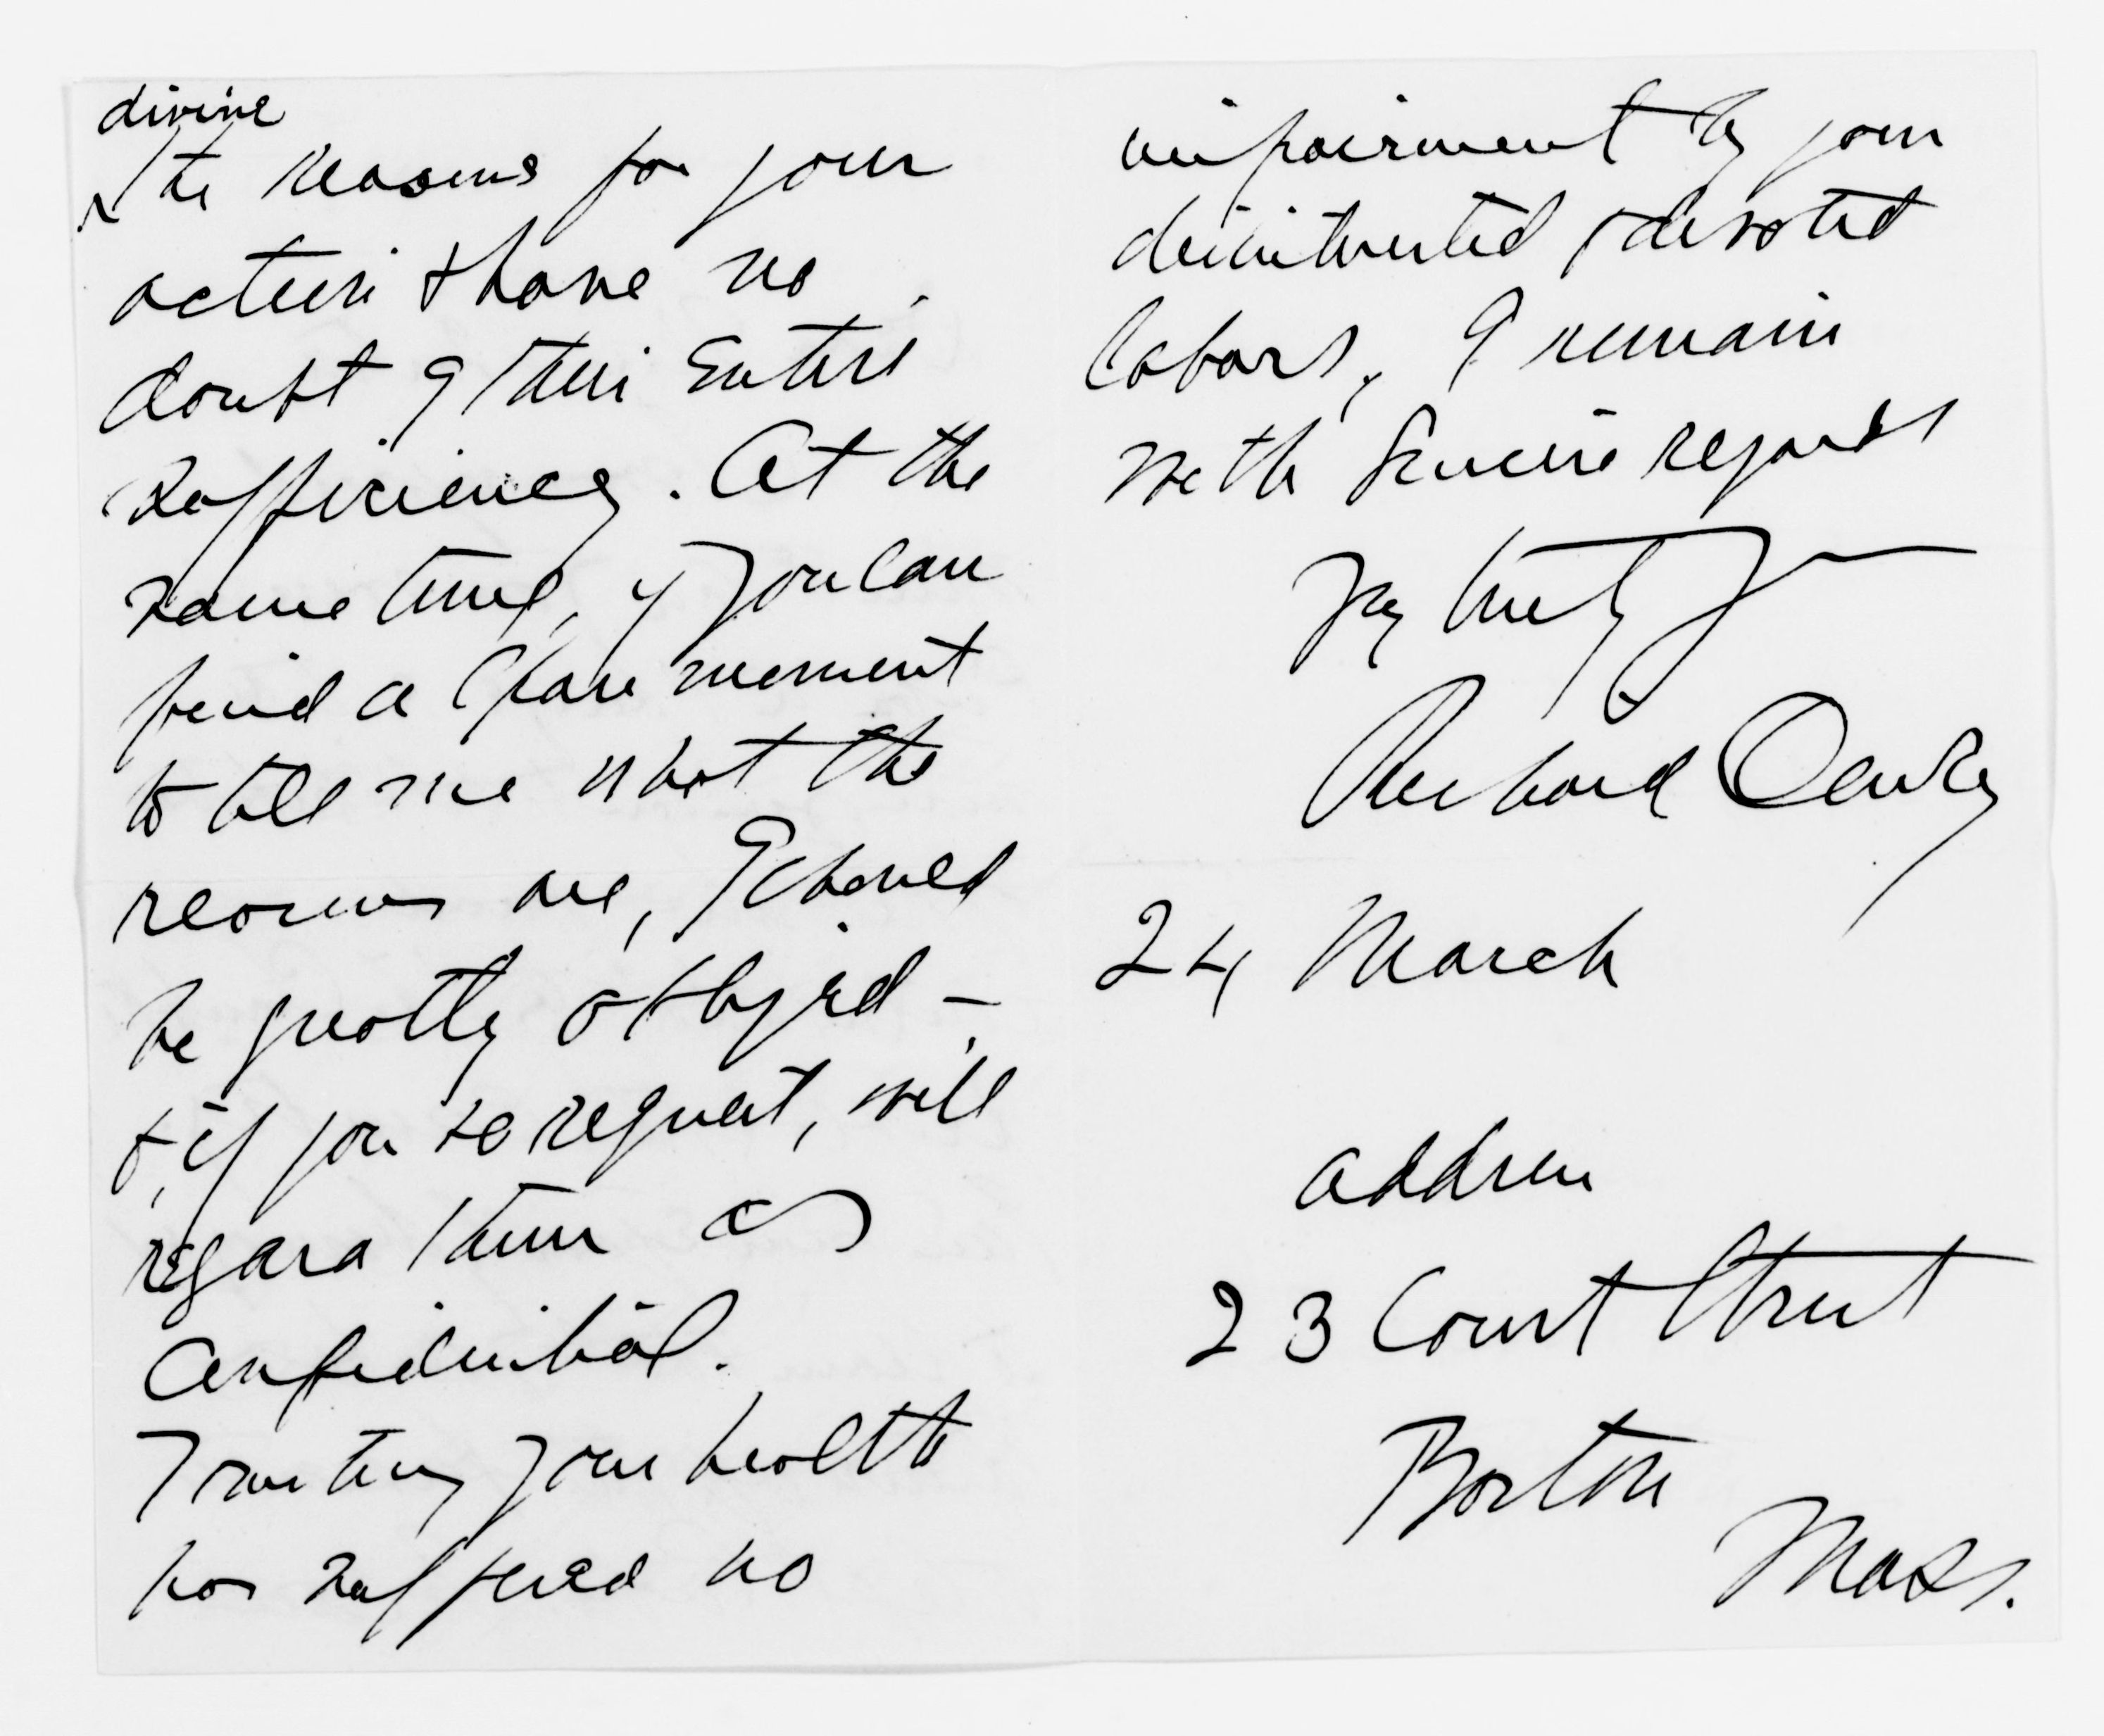 divine
the reasons for your
action & have no
doubt of their entire
sufficiency. At the
same time, if you can
find a spare moment
to tell me what the
reasons are, I should
be greatly obliged –
& if you so request, will
regard them as
confidential.
Trusting your health
has suffered no
impairment by your
disinterested & devoted
labors, I remain
with sincere regards
Vy truly yrs
Richard
24 March
address
23 Court Street
Boston
Mass.